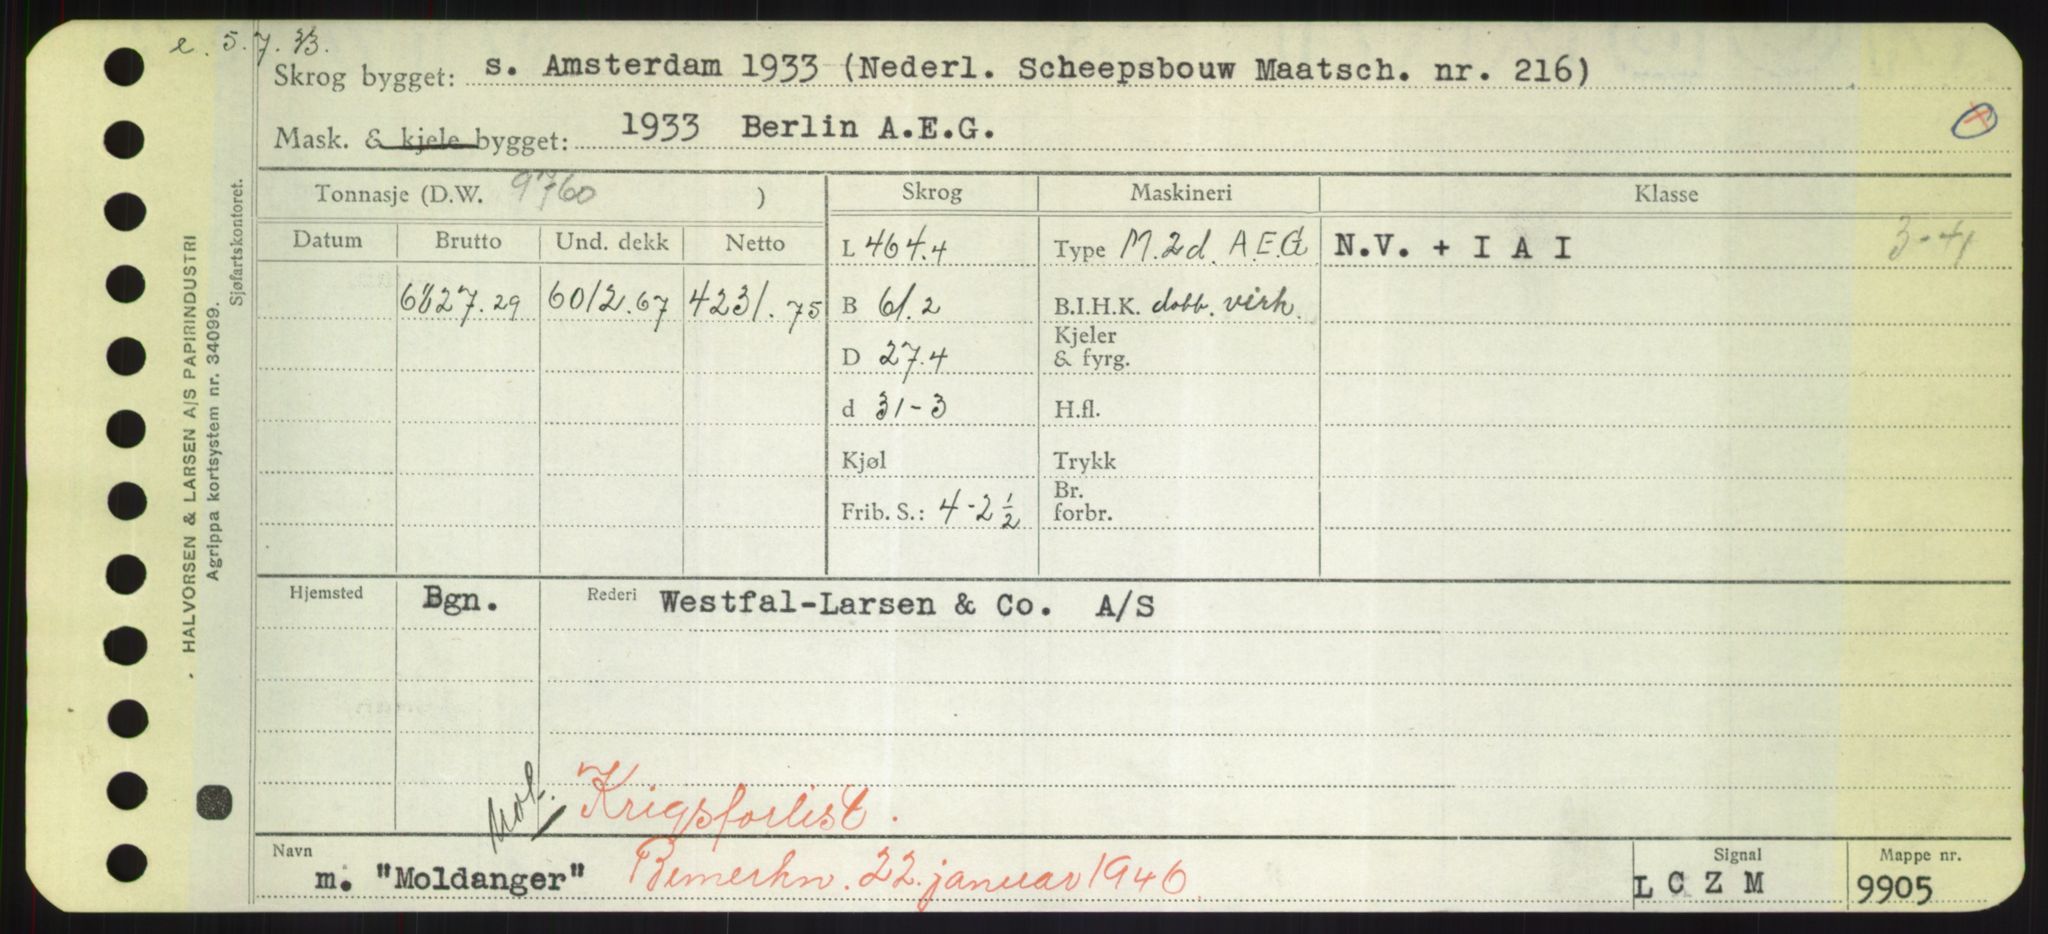 e. 5.7.33.
Skrog bygget: s. Amsterdam 1933 (Nederl. Scheepsbouw Maatsch. nr. 216)
Mask. & kjele bygget: 1933 Berlin A.E.G.
Tonnasje (D.W. 9760 )
Skrog
Maskineri
Klasse
Datum
Brutto
Und. dekk
Netto
6827.29
6012.67
4231.75
L 464.4
B 61.2
D 27.4
d 31-3
Kjøl
Frib. S.: 4-2 1/2
Type M.2d. A.E.G
B.I.H.K. dobb. virk.
Kjeler
& fyrg.
H.fl.
Trykk
Br.
forbr.
N.V. + I A I
3-41
Hjemsted Bgn.
Rederi Westfal-Larsen & Co. A/S
Mol.
Krigsforlist.
Navn
m. "Moldanger"
Bemerkn. 22. januar 1946.
Signal
L C Z M
Mappe nr.
9905
HALVORSEN & LARSEN A/S PAPIRINDUSTRI
Agrippa kortsystem nr. 34099.
Sjøfartskontoret.